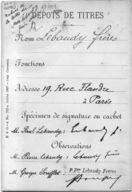 DÉPÔTS DE TITRES
Nom Lebaudy frères
Fonctions
Adresse 19. Rue Flandre
à Paris
Spécimen de signature ou cachet
M. Paul Lebaudy: Lebaudy f.
Observations
M. Pierre Lebaudy: Lebaudy frères
M. Georges
P. pon Lebaudy Frères